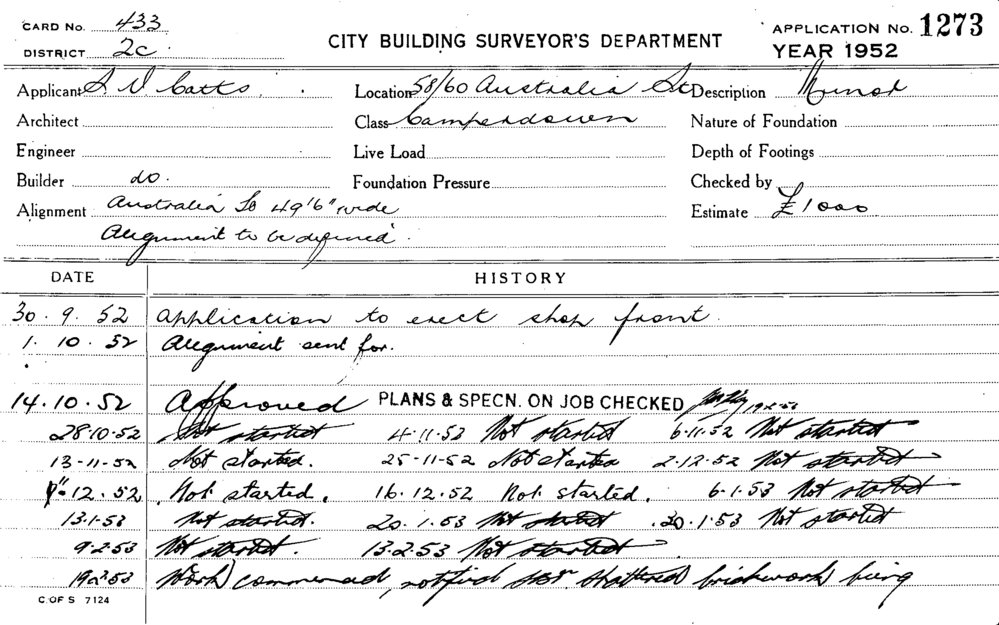 CARD No. 433
DISTRICT 2c.
CITY BUILDING SURVEYOR'S DEPARTMENT
APPLICATION No. 1273
YEAR 1952
Applicant S. V Catts. Location 58/60 Australia St Description Minor
Architect Class Camperdown Nature of Foundation
Engineer Live Load Depth of Footings
Builder do. Foundation Pressure Checked by
Alignment Australia St 49'6" wide Estimate £1000
Alignment to be defined.
DATE HISTORY
30.9.52 Application to erect shop front.
1.10.52 Alignment sent for.
14.10.52 Approved PLANS & SPECN. ON JOB CHECKED
28.10.52 Not started 4.11.52 Not started 6.11.52 Not started
13-11-52 Not started. 25-11-52 Not started 2.12.52 Not started
12.52 Not started. 16.12.52 Not started. 6.1.53 Not started
13.1.53 Not started. 20.1.53 Not started 30.1.53 Not started
9.2.53 Not started. 13.2.53 Not started
19.2.53 Work commenced, notified shattered brickwork being
C.OF S 7124